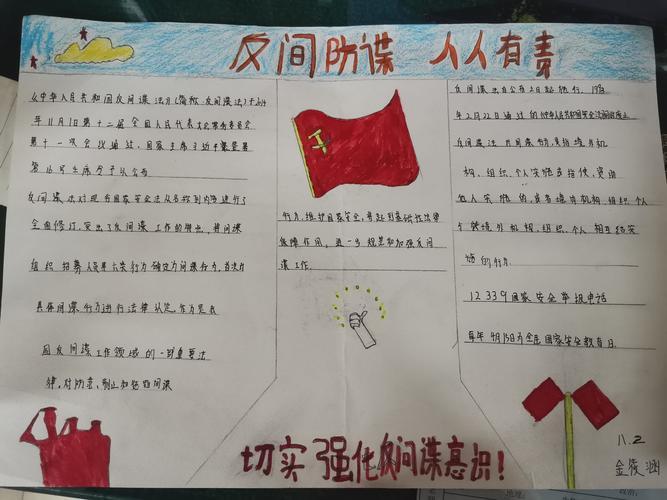 反间防谍 人人有责
《中华人民共和国反间谍法》(简称:反间谍法)于2014
年11月1日第十二届全国人民代表大会常务委员会
第十一次会议通过,国家主席习近平签署
第16号主席令予以公布
反间谍法对现有国家安全法从名称到内容进行了
全面修订,突出了反间谍工作的特点,将间谍
组织招募人员等六类行为确定为间谍行为,首次对
具体间谍行为进行法律认定,作为是我
国反间谍工作领域的一部重要法
律,对防范、制止和惩治间谍
行为,维护国家安全,将起到基础性法律
保障作用,进一步规范和加强反间
谍工作.
反间谍法自公布之日起施行,1993
年2月22日通过的《中华人民共和国国家安全法》同时废止
反间谍法
构、组织、个人实施或指使、资助
他人实施的,或者境内机构、组织、个人
与境外机构、组织、个人相互勾结实
施的行为
12339国家安全举报电话
每年4月15日为全民国家安全教育日.
切实强化反间谍意识!
11.2
金筱涵